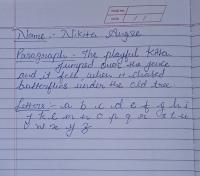 Name :- Nikita
Paragraph :- The playful kitten
jumped over the fence
and it fell, when it chased
butterflies under the old tree.
Letters :- a b c d e f g h i
j k l m n o p q r s t u
v w x y z